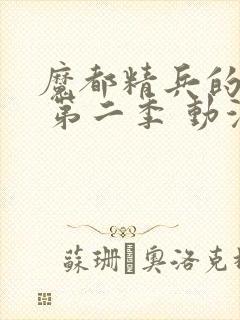 魔都精兵的
第二季 動
蘇珊 奧洛克